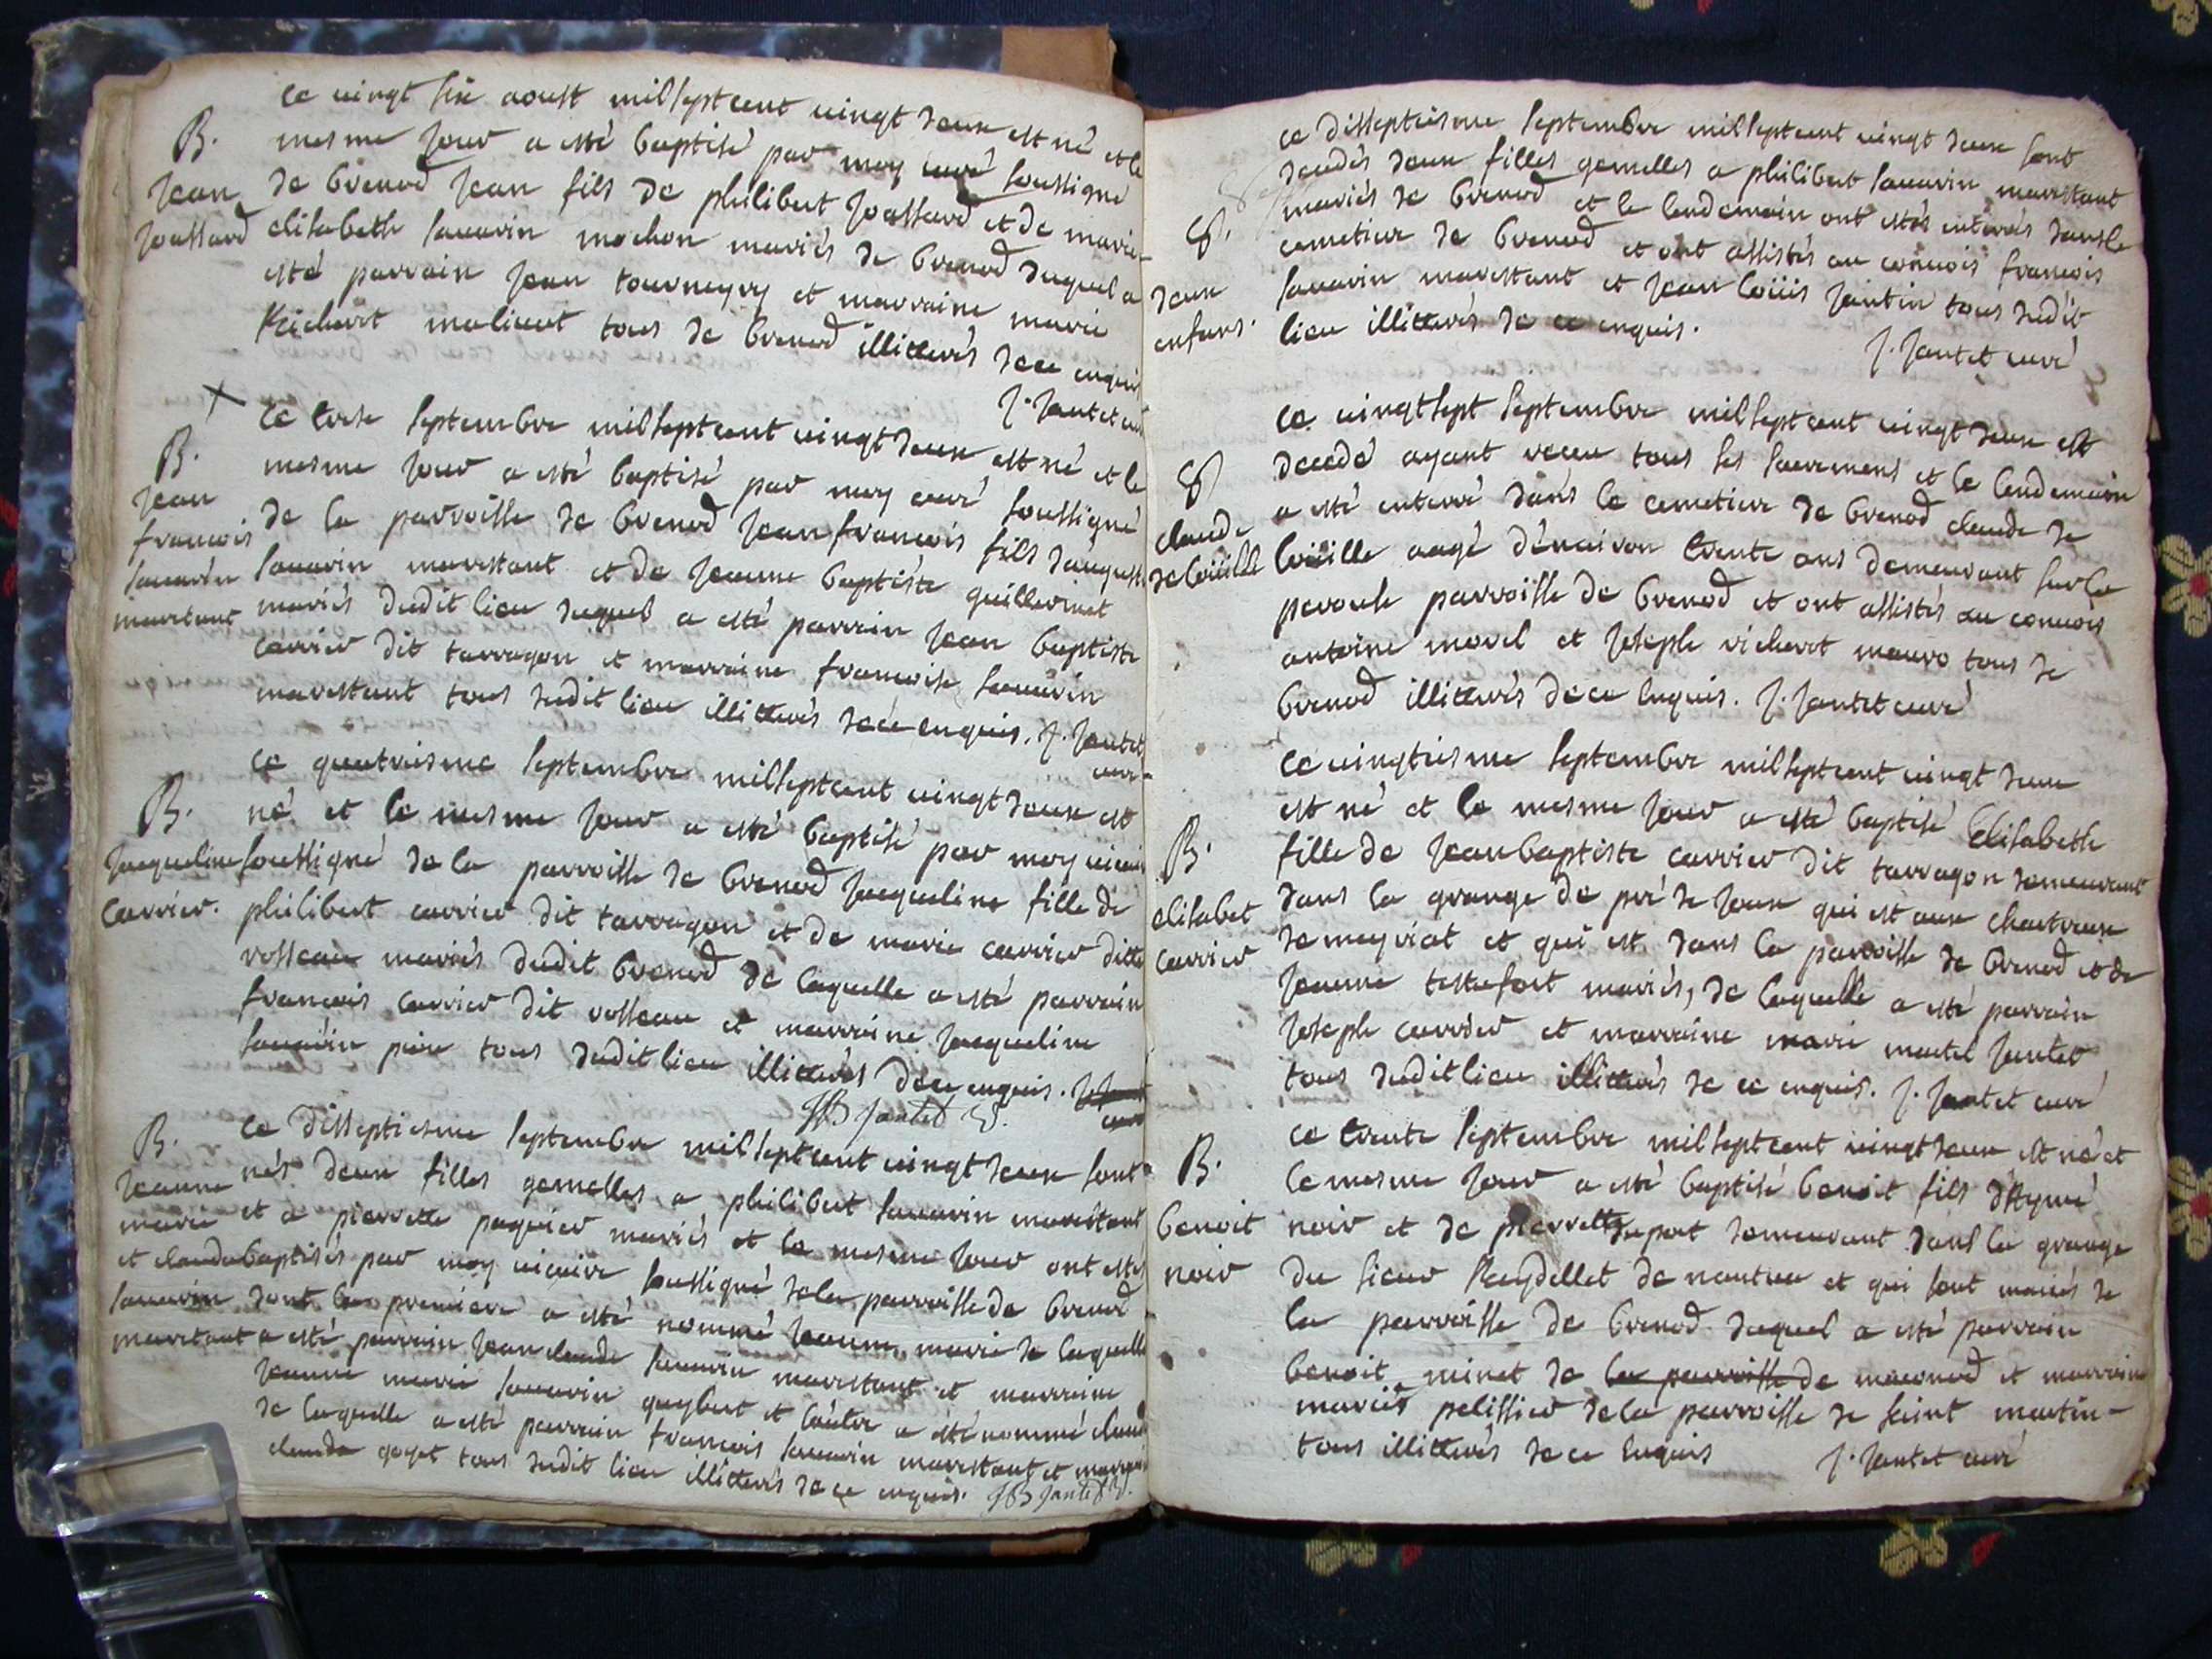 ce vingt six aoust mil sept cent vingt deux est né et le
B. mesme jour a esté baptisé par moy curé soussigné
jean de brenod jean fils de philibert joassard et de marie
joassard elisabeth savarin mochon mariés de brenod duquel a
esté parrain jean tourneyry et marraine marie
richerot molinet tous de brenod illitterés de ce enquis
j. jantet curé
ce trese septembre mil sept cent vingt deux est né et le
B. mesme jour a esté baptisé par moy curé soussigné
jean de la parroisse de brenod jean francois fils d'auguste
francois savarin marestant et de jeanne baptiste guillerminet
savarin mariés dudit lieu duquel a esté parrain jean baptiste
marestant carrier dit tarragon et marraine francoise savarin
marestant tous dudit lieu illitterés de ce enquis. j. jantet
curé
ce quatriesme septembre mil sept cent vingt deux est
B. né et le mesme jour a esté baptisé par moy vicaire
jacqueline soussigné de la parroisse de brenod jacqueline fille de
carrier. philibert carrier dit tarragon et de marie carrier ditte
rosseau mariés dudit brenod de laquelle a esté parrain
francois carrier dit rosseau et marraine jacqueline
savarin tous dudit lieu illitterés de ce enquis.
JB jantet
B. ce disseptiesme septembre mil sept cent vingt deux sont
jeanne nés deux filles gemelles a philibert savarin marestant
marie et a pierrette paquier mariés et le mesme jour ont estés
et clauda baptisés par moy vicaire soussigné de la parroisse de brenod
savarin dont la premiere a esté nommé jeanne marie de laquelle
marestant a esté parrain jean claude savarin marestant et marraine
jeanne marie savarin et l'autre a esté nommé claud
de laquelle a esté parrain francois savarin marestant et marraine
clauda goyet tous dudit lieu illitterés de ce enquis. JB jantet
ce disseptiesme septembre mil sept cent vingt deux sont
decedés deux filles gemelles a philibert savarin marestant
mariés de brenod et le lendemain ont estés enterrés dans le
cemetiere de brenod et ont assistés au convois francois
deux savarin marestant et jean loüis jantin tous dudit
enfans. lieu illitterés de ce enquis.
j. jantet curé
ce vingt sept septembre mil sept cent vingt deux est
decedé ayant receu tous ses sacremens et le lendemain
a esté enterré dans le cemetiere de brenod claude de
claude loüille aagé d'environ trente ans demeurant sur la
de loüille perouse parroisse de brenod et ont assistés au convois
antoine morel et joseph richerot mauro tous de
brenod illitterés de ce enquis. j. jantet curé
ce vingtiesme septembre mil sept cent vingt deux
est né et le mesme jour a esté baptisé Elisabeth
B. fille de jean baptiste carrier dit tarragon demeurant
elisabet dans la grange de pré de joux qui est aux chartreux
carrier de meyriat et qui est dans la parroisse de brenod et de
jeanne testefort mariés, de laquelle a esté parrain
joseph carrier et marraine marie martel jantet
tous dudit lieu illitterés de ce enquis. j. jantet curé
ce trente septembre mil sept cent vingt deux est né et
B. le mesme jour a esté baptisé benoit fils d'Aymé
benoit noir et de pierrette dupont demeurant dans la grange
noir du sieur Reydellet de nantua et qui sont mariés de
la parroisse de brenod duquel a esté parrain
benoit minet de la parroisse de maconod et marraine
pelissier de la parroisse de saint martin
tous illitterés de ce enquis j. jantet curé